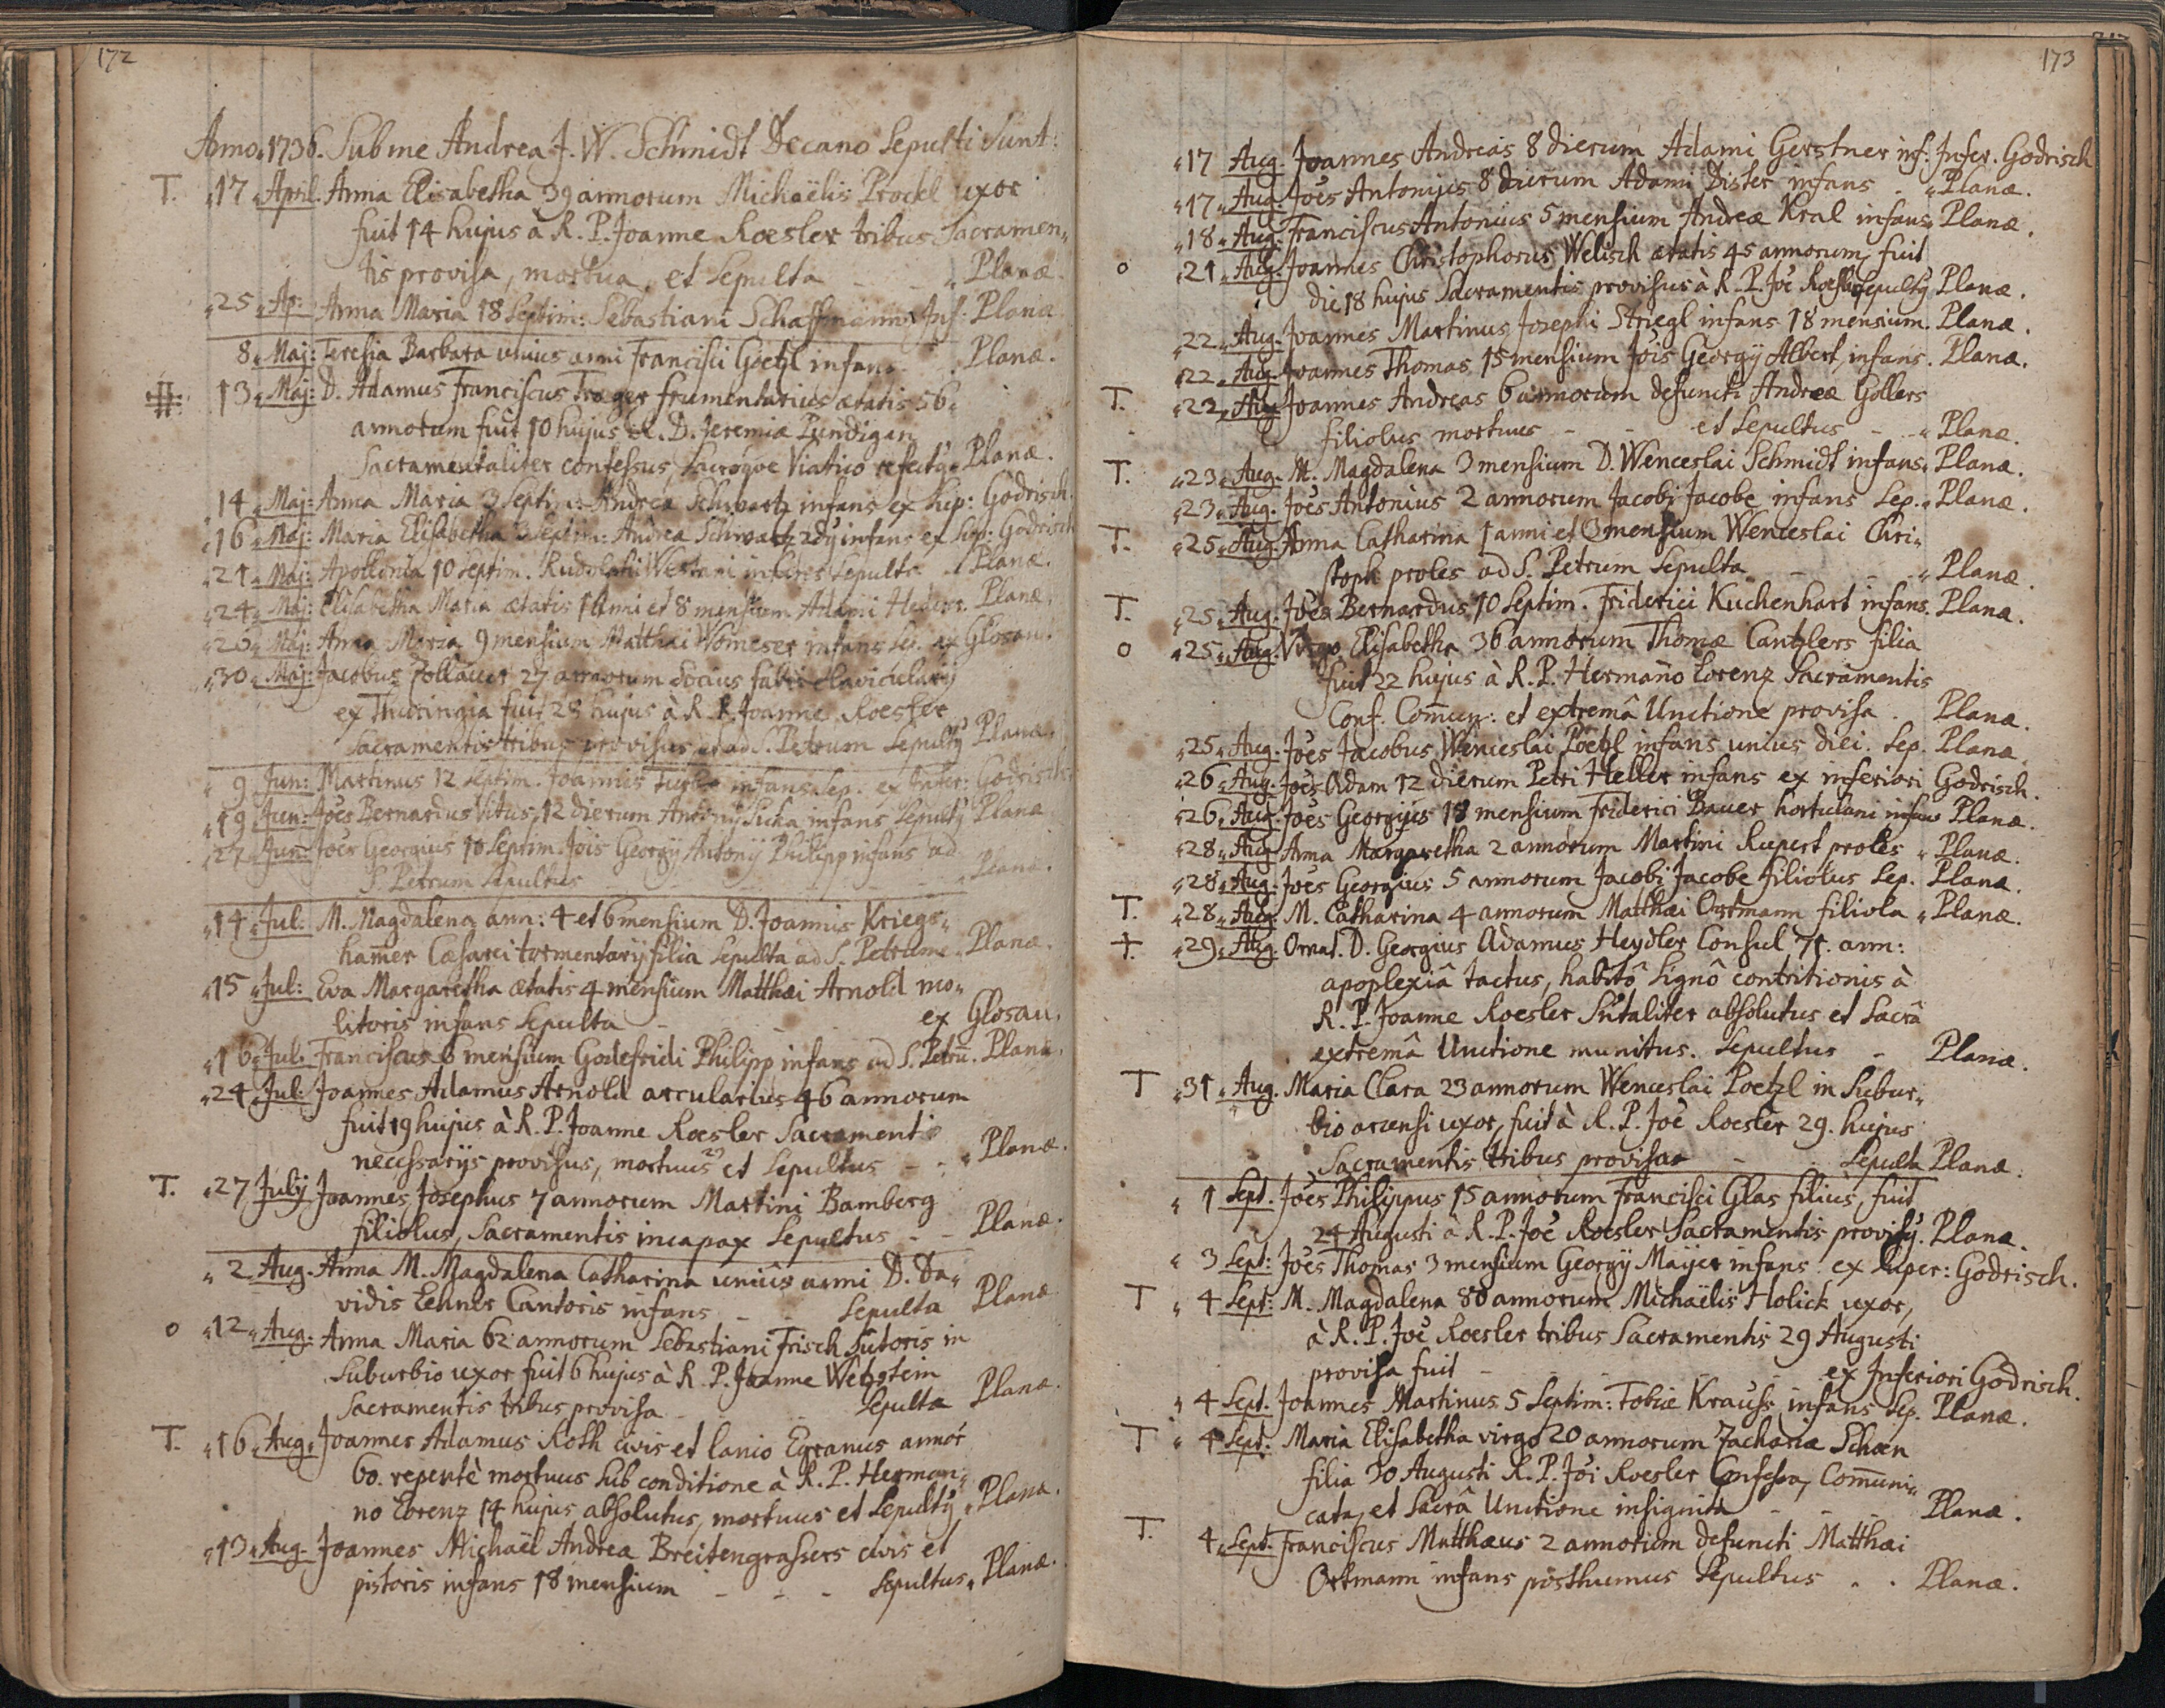 172
Anno 1736. Sub me Andrea J. W. Schmidt Decano Sepulti Sunt:
T. 17 April. Anna Elisabetha 39 annorum Michaëlis Prockl uxor
fuit 14 hujus à R. P. Joanne Roesler tribus Sacramen„
tis provisa, mortua, et Sepulta - - Planæ.
25 Ap: Anna Maria 18 Septim: Sebastiani Inf. Planæ
8 Maj: Teresia Barbara unius anni Francisci Goetzl infans Planæ.
13 Maj: D. Adamus Franciscus Træger frumentarius ætatis 56
annorum fuit 10 hujus R. D. Jeremia Pündiger
Sacramentaliter confessus, Sacroque Viatico refectq Planæ.
14 Maj: Anna Maria 3 Septim: Andreæ Schwartz infans ex Sup: Godrisch.
16 Maj: Maria Elisabetha 3 Septim: Andreæ Schwartz 2dꝰ infans ex Sup: Godrisch
21 Maj: Apollonia 10 Septim. Rudolphi Westani infans Sepulta Planæ.
24 Maj: Elisabetha Maria ætatis 1 Anni et 8 mensium Adami Planæ.
26 Maj: Anna Maria 9 mensium Matthæi Womeser infans Se. ex Glosau.
30 Maj: Jacobus Zollauer 27 annorum Socius fabri clavicularij
ex Thuringia fuit 28 hujus à R. P. Joanne Roesler
Sacramentis tribus provisus, et ad S. Petrum Sepultq Planæ.
9 Jun: Martinus 12 Septim. Joannis infans Sep. ex Infer: Godrisch
19 Jun: Joës Bernardus Vitus, 12 dierum Antonij Sicka infans Sepultq Planæ
27 Jun: Joës Georgius 10 Septim. Jois Georgij Antonij Philipp infans ad
S. Petrum Sepultus - - - Planæ.
14 Jul. M. Magdalena ann: 4 et 6 mensium D. Joannis Kriegs„
ham̄er Cæsarei tormentarij filia Sepulta ad S. Petrum Planæ.
15 Jul: Eva Margaretha ætatis 4 mensium Matthæi Arnold mo„
litoris infans Sepulta - - ex Glosau.
16 Jul. Franciscus 6 mensium Godefridi Philipp infans ad S. Petrū. Planæ.
24 Jul: Joannes Adamus Arnold arcularius 46 annorum
fuit 19 hujus à R. P. Joanne Roesler Sacramentis
necessarijs provisus, mortuus et Sepultus - - Planæ.
T. 27 July Joannes Josephus 7 annorum Martini Bamberg
filiolus, Sacramentis incapax Sepultus - - Planæ.
2 Aug. Anna M. Magdalena Catharina unius anni D. Da„
vidis Lehner Cantoris infans - - Sepulta Planæ
o 12 Aug: Anna Maria 62 annorum Sebastiani Frisch Sutoris in
Suburbio uxor fuit 6 hujus à R. P. Joanne Webstein
Sacramentis tribus provisa - - Sepulta Planæ.
T. 16 Aug. Joannes Adamus Roth civis et lanio Egranus annor̄
60. repentè mortuus Sub conditione à R. P. Herman„
no Lorenz 14 hujus absolutus, mortuus et Sepultq Planæ.
13 Aug. Joannes Michaël Andreæ Breitengrassers civis et
pistoris infans 18 mensium - - - Sepultus, Planæ.
173
17 Aug. Joannes Andreas 8 dierum Adami Gerstner inf: Infer. Godrisch
17 Aug. Joës Antonius 8 dierum Adami Dister infans - Planæ.
18 Aug: Franciscus Antonius 5 mensium Andreæ Kral infans Planæ.
o 21 Aug. Joannes Christophorus Welisch ætatis 45 annorum, fuit
die 18 hujus Sacramentis provisus à R. P. Joē Roesler Sepultq Planæ.
22 Aug. Joannes Martinus Josephi Striegl infans 18 mensium. Planæ.
22 Aug. Joannes Thomas 15 mensium Jois Georgij Albert infans. Planæ.
T. 22 Aug Joannes Andreas 6 annorum defuncti Andreæ Gollers
filiolus mortuus - - et Sepultus - Planæ.
T. 23 Aug. M. Magdalena 3 mensium D. Wenceslai Schmidt infans. Planæ.
23 Aug. Joës Antonius 2 annorum Jacobi Jacobe infans Sep. Planæ.
T. 25 Aug. Anna Catharina 1 anni et 3 mensium Wenceslai Chri„
stoph proles ad S. Petrum Sepulta - - Planæ.
T. 25 Aug. Joës Bernardus 10 Septim. Friderici Kuchenhart infans. Planæ.
o 25 Aug. Virgo Elisabetha 36 annorum Thomæ Cantzlers filia
fuit 22 hujus à R. P. Herman̄o Lorenz Sacramentis
Conf. Com̄un: et extremâ Unctione provisa. Planæ.
25 Aug. Joës Jacobus Wenceslai Poetzl infans unius diei. Sep. Planæ
26 Aug. Joës Adam 12 dierum Petri Heller infans ex inferiori Godrisch.
26 Aug. Joës Georgius 18 mensium Friderici Bauer hortulani infans Planæ.
28 Aug Anna Margaretha 2 annorum Martini Rupert proles Planæ.
28 Aug. Joës Georgius 5 annorum Jacobi Jacobe filiolus Sep. Planæ.
T. 28 Aug. M. Catharina 4 annorum Matthæi Ortmann filiola Planæ.
+ 29 Aug. Ornat. D. Georgius Adamus Heydler Consul 71. ann:
apoplexiâ tactus, habitô Signô contritionis à
R. P. Joanne Roesler Sńtaliter absolutus et Sacrâ
extremâ Unctione munitus. Sepultus - Planæ.
T 31 Aug. Maria Clara 23 annorum Wenceslai Poetzl in Subur„
bio arcensi uxor, fuit à R. P. Joē Roesler 29. hujus
Sacramentis tribus provisa - - Sepulta Planæ.
1 Sept. Joës Philippus 15 annorum Francisci Glas filius, fuit
24 Augusti à R. P. Joē Roesler Sacramentis provisq. Planæ.
3 Sept: Joës Thomas 3 mensium Georgij Maijer infans ex Super: Godrisch.
T 4 Sept: M. Magdalena 80 annorum Michaëlis Holick uxor,
à R. P. Joē Roesler tribus Sacramentis 29 Augusti
provisa fuit - - - ex Inferiori Godrisch.
4 Sept. Joannes Martinus 5 Septim: Tobiæ Krauss infans Sep. Planæ.
T 4 Sept. Maria Elisabetha virgo 20 annorum Zachariæ Schœn
filia 30 Augusti R. P. Joī Roesler Confessa, Com̄uni„
cata, et Sacrâ Unctione insignita - - Planæ.
T. 4 Sept. Franciscus Matthæus 2 annorum defuncti Matthæi
Ortmann infans posthumus Sepultus . . Planæ.